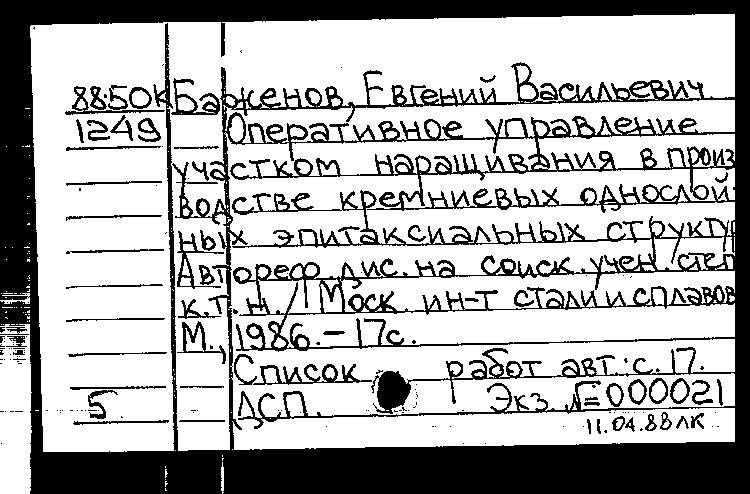 88.50К Баженов, Евгений Васильевич
1249 Оперативное управление
участком наращивания в произ
водстве кремниевых однослой
ных эпитаксиальных структур
Автореф. дис. на соиск. учен. степ
к.т.н. / Моск. ин-т стали и сплавов
М., 1986. – 17с.
Список работ авт.: с. 17.
5 ДСП. Экз. №=000021
11.04.88 ЛК